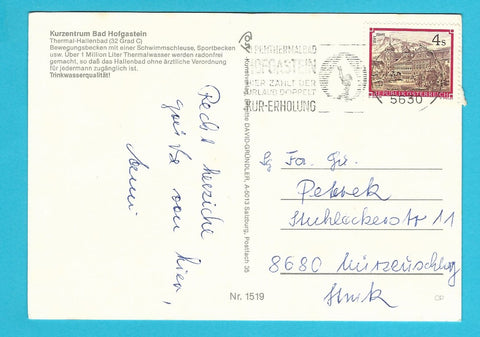 Kurzentrum Bad Hofgastein
Thermal-Hallenbad (32 Grad C)
Bewegungsbecken mit einer Schwimmschleuse, Sportbecken
usw. Über 1 Million Liter Thermalwasser werden radonfrei
gemacht, so daß das Hallenbad ohne ärztliche Verordnung
für jedermann zugänglich ist.
Trinkwasserqualität!
Recht herzliche
grüße von hier,
Nr. 1519
DAVID-GRÜNDLER, A-5013 Salzburg, Postfach 35
THERMALBAD
HOFGASTEIN
HIER ZÄHLT DER
URLAUB DOPPELT
KUR-ERHOLUNG
5630
4 S
REPUBLIK ÖSTERREICH
Fa.
Petrek
Stuhleckerstr 11
8680 Mürzzuschlag
Stmk